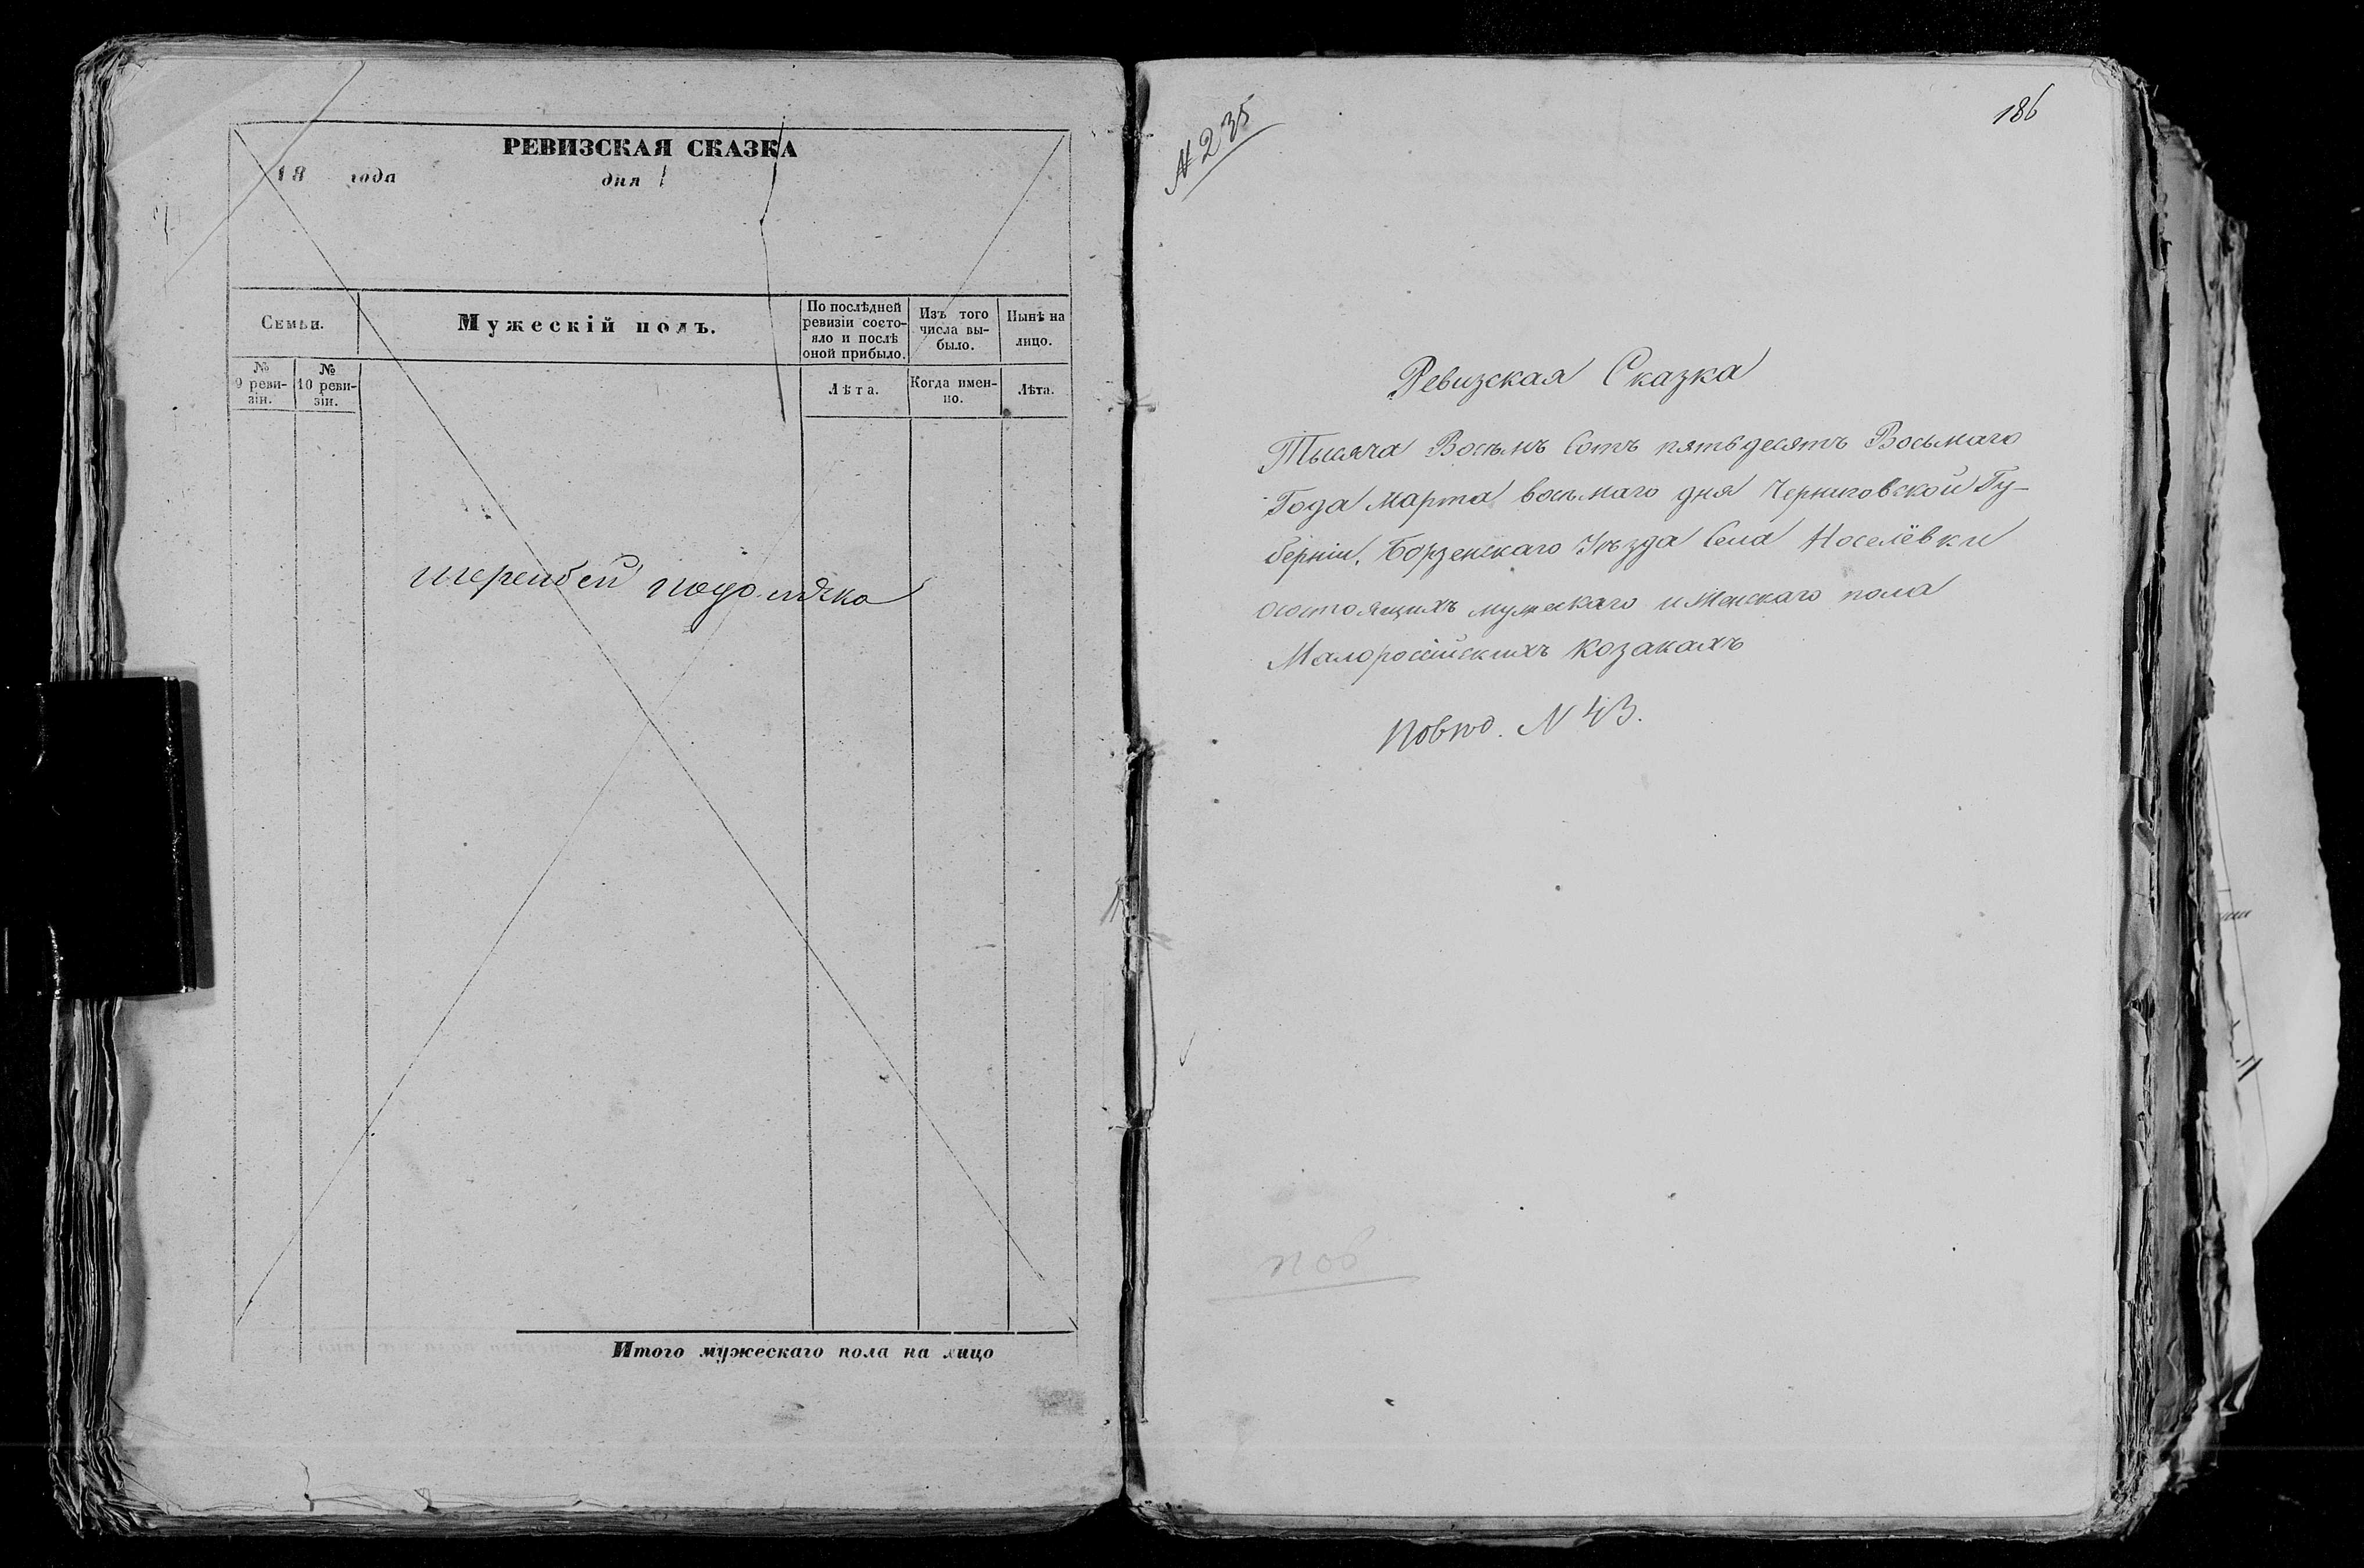 РЕВИЗСКАЯ СКАЗКА
18 года дня
Семьи.
Мужескій полъ.
По послѣдней
ревизіи состо-
яло и послѣ
оной прибыло.
Изъ того
числа вы-
было.
Нынѣ на
лицо.
№
9 реви-
зіи.
№
10 реви-
зіи.
Лѣта.
Когда имен-
но.
Лѣта.
Итого мужескаго пола на лицо
N 235
186
Ревизская Сказка
Тысяча Восемъ Сотъ пятьдесятъ Восьмаго
Года марта восьмаго дня Черниговской Гу-
берніи, Борзенскаго Уѣзда Села Носелёвки
состоящихъ мужескаго и Женскаго пола
Малороссійскихъ Козакахъ
N 43.